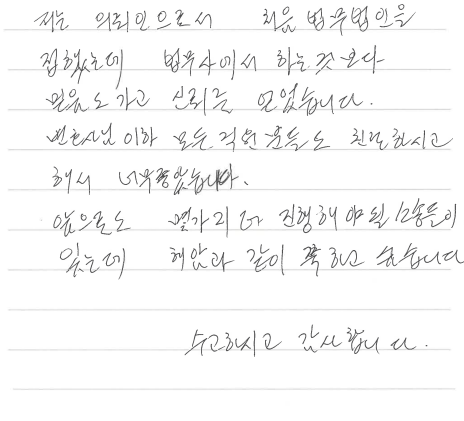 저는 의뢰인으로서 처음 법무법인을
접했는데 법무사에서 하는것 보다
믿음도 가고 신뢰를 얻었습니다.
변호사님 이하 모든 직원분들도 친절하시고
해서 너무좋았습니다.
앞으로도 몇가지 더 진행해야될 소송들이
있는데 해암과 같이 쭉 하고 싶습니다
수고하시고 감사합니다.